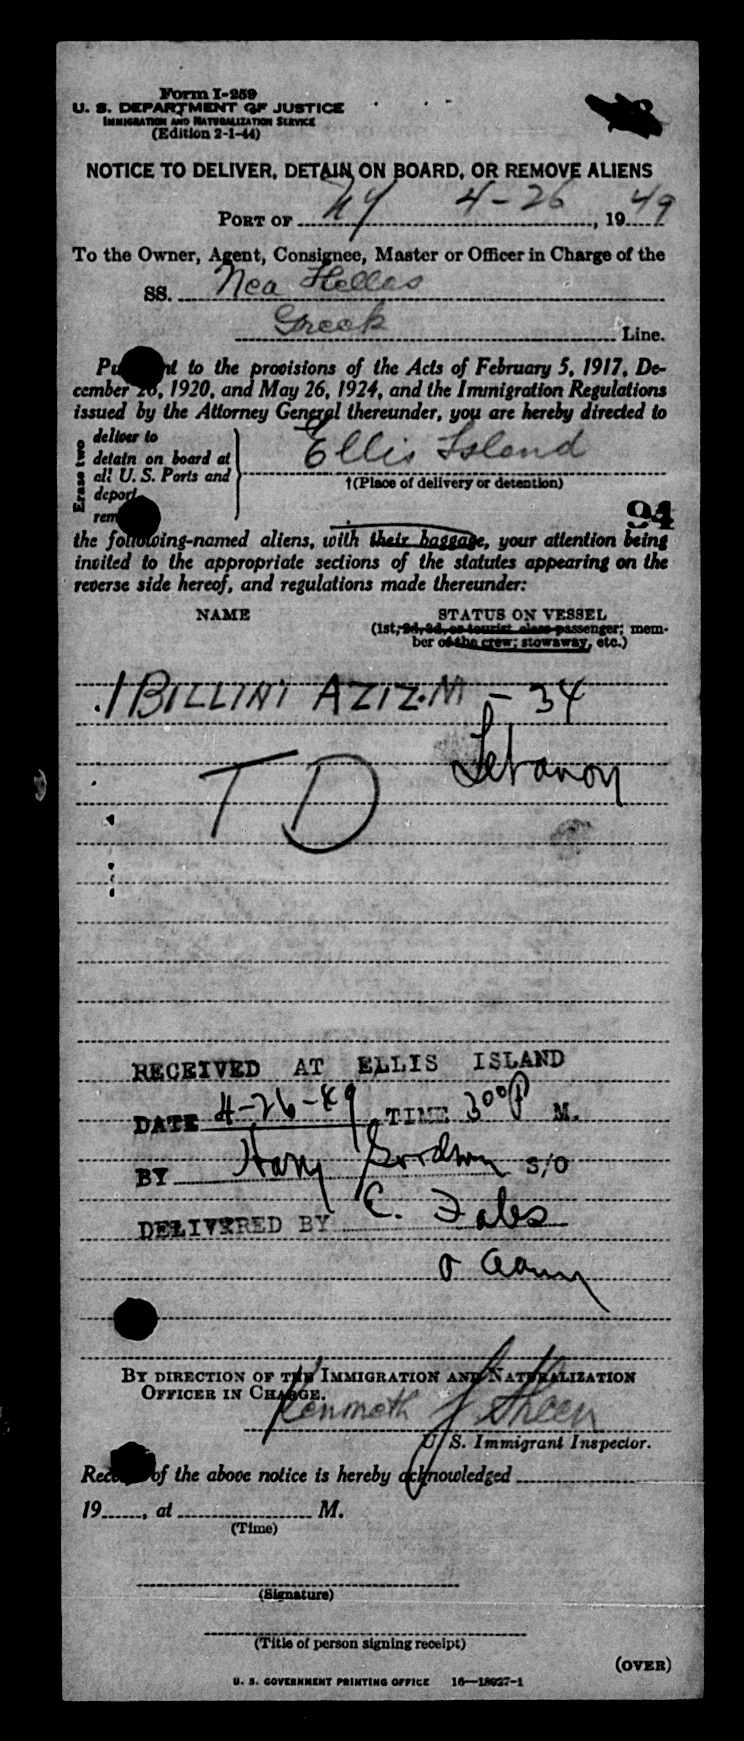 Form I-259
U. S. DEPARTMENT OF JUSTICE
IMMIGRATION AND NATURALIZATION SERVICE
(Edition 2-1-44)
NOTICE TO DELIVER, DETAIN ON BOARD, OR REMOVE ALIENS
PORT OF NY 4-26, 1949
To the Owner, Agent, Consignee, Master or Officer in Charge of the
SS. Nea Hellas
Greek Line.
to the provisions of the Acts of February 5, 1917, De-
cember 26, 1920, and May 26, 1924, and the Immigration Regulations
issued by the Attorney General thereunder, you are hereby directed to
Erase two
deliver to
detain on board at
all U. S. Ports and
deport
Ellis Island
†(Place of delivery or detention)
94
the following-named aliens, with their baggage, your attention being
invited to the appropriate sections of the statutes appearing on the
reverse side hereof, and regulations made thereunder:
NAME STATUS ON VESSEL
(1st, 2d, 3d, or tourist class passenger; mem-
ber of the crew; stowaway, etc.)
1 BILLINI AZIZ.M - 34
Lebanon
TD
RECEIVED AT ELLIS ISLAND
DATE 4-26-49 TIME 3 00 P M.
BY Harry Goodwin S/O
DELIVERED BY C.
BY DIRECTION OF THE IMMIGRATION AND NATURALIZATION
OFFICER IN CHARGE.
Kenneth J Sheen
U. S. Immigrant Inspector.
of the above notice is hereby acknowledged
19, at M.
(Time)
(Signature)
(Title of person signing receipt)
(OVER)
U. S. GOVERNMENT PRINTING OFFICE 16—18027-1